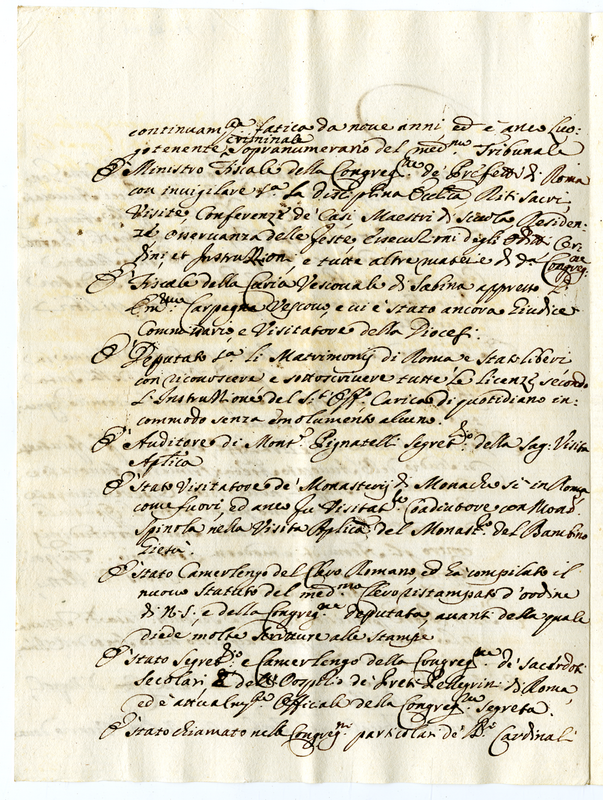 continuam.te fatica da nove anni, ed è anco Luo=
gotenente criminale Sopranumerario del med.mo Tribunale
È Ministro Fiscale della Congreg.ne de Prefetti di Roma
con invigilare s.a la disciplina Eccl.ca Riti Sacri
Visite, Conferenze de Casi, Maestri di Scuola, Residen=
za, osservanza delle feste, esecuzioni degli Editti, Or=
dini, et Instruttioni, e tutte altre materie di d.a Congreg.ne
È Fiscale della Curia Vescovale di Sabina appresso l'
Em.mo Carpegna Vescovo, e vi è stato ancora Giudice
Commissario, e Visitatore della Diocesi.
È Deputato s.a li Matrimonij di Roma e Stato liberi
con riconoscere, e sottoscrivere tutte le licenze secondo
l'Instruttione del S.t Off.o Carica di quotidiano in=
commodo senza emolumento alcuno.
È Auditore di Mons.r Pignatelli Segret.rio della Sag. Visita
Aplica
È Stato Visitatore de Monasterij di Monache sì in Roma
come fuori, ed anco fu Visitat.re Coadiutore con Mons.
Spinola nella Visita Aplica del Monast.ro del Bambino
Giesù.
È stato Camerlengo del Clero Romano, ed ha compilato il
nuovo Statuto del med.mo Clero ristampato d'ordine
di N.S. e della Congreg.ne deputata, avanti della quale
diede molte scritture alle Stampe
È stato Segret.rio e Camerlengo della Congreg.ne de sacerdoti
Secolari dell' Ospitio de Preti Pellegrini di Roma,
ed è attualm.te Officiale della Congreg.ne Segreta.
È stato chiamato nelle Congreg.ni particolari de Cardinali